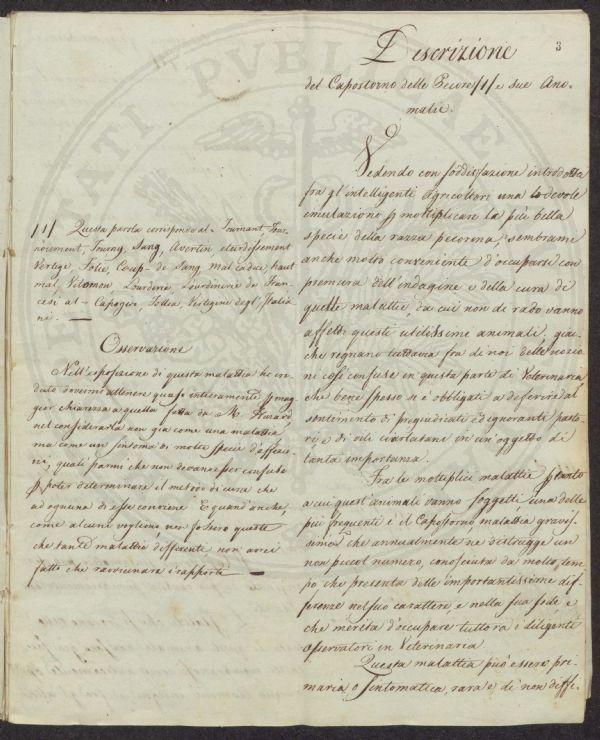 3
Descrizione
del Capostorno delle Pecore /1/ e sue Ano-
malie.
Vedendo con soddisfazione introdotta
fra gl'intelligenti Agricoltori una lodevole
emulazione p moltiplicare la più bella
specie della razza pecorina, sembrami
anche molto conveniente d'occuparsi con
premura dell'indagine e della cura di
quelle malattie, da cui non di rado vanno
affetti questi utilissimi animali, giac-
che regnano tuttavia fra di noi delle nozio-
ni così confuse in questa parte di Veterinaria
che bene spesso si è obbligati a deferire al
sentimento di pregiudicati ed ignoranti pasto-
ri e di vili ciarlatani in un'oggetto di
tanta importanza.
Fra le moltiplici malattie ptanto
a cui quest'animale vanno soggette una delle
più frequenti è il Capostorno malattia gravis-
sima che annualmente ne distrugge un
non piccol numero, conosciuta da molto tem-
po che presenta delle importantissime dif-
ferenze nel suo carattere, e nella sua sede, e
che merita d'occupare tuttora i diligenti
osservatori in Veterinaria
Questa malattia può essere pri-
maria o Sintomatica, rara o di non diffi-
/1/ Questa parola corrisponde al - Tournant, Tour-
noiement, Tourny, Sang, Avertin eturdissement
Vertige, Folie, Coup-de Sang, mal caduc haut
mal, Lourderie, Lourdinerie de Fran-
cesi al - Capogiro, Vertigine degl'Italia-
ni. —
Osservazione
Nell'esposizione di questa malattia ho cre-
duto dovermi attenere quasi intieramente p mag
gior chiarezza a quella fatta da M. Huzard
nel considerarla non già come una malattia
ma come un sintoma di molte specie d'affezio-
ni, quali parmi che non devansi per confuse
p poter determinare il metodo di cura che
ad ognuna di esse conviene. E quand'anche,
come alcuni vogliono non fossero queste
che tante malattie differenti non avrei
fatto che ravvicinare i rapporti —